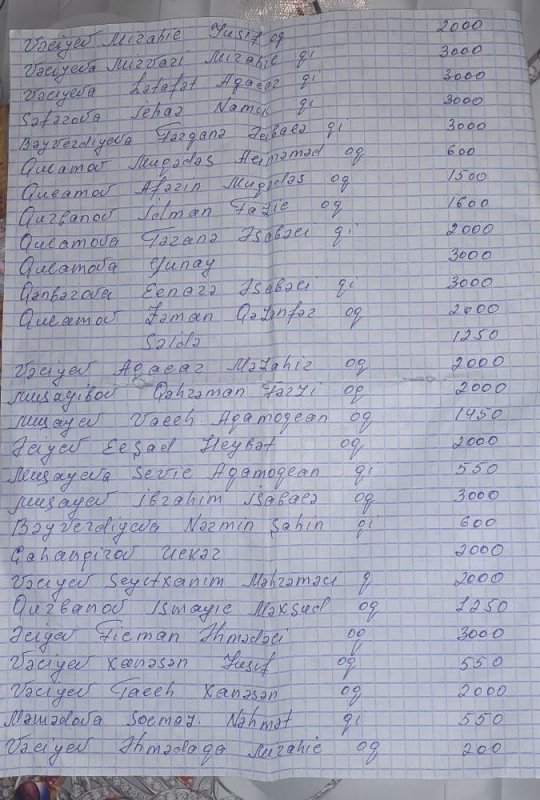 Vəliyev Mirəhil Yusif oq 2000
Vəliyeva Mirvari Mirəhil qi 3000
Vəliyeva Lətafət Ağalar qi 3000
Səfərova Namik qi 3000
Bəyverdiyeva Fərqanə qi 3000
Qulamov Muqədəs oq 600
Qulamov Afərin Muqədəs oq 1500
Qurbanov Fazil oq 1600
Qulamova Fəranə Əşabəli qi 2000
Qulamova Yunay 3000
Qənbərova Elnarə Əşabəli qi 3000
Qulamov Zəman Qəzənfər oq 2600
Səidə 1250
Vəliyev Ağalar Məzahir oq 2000
Muşagibov Qəhrəman Fərzi oq 2000
Muşayev Valeh Aqamoqlan oq 1450
Əliyev Elşad Heybət oq 2000
Muşayeva Sevil Aqamoqlan qi 550
Muşayev Ibrahim Işabala oq 3000
Bəyverdiyeva Nərmin Şahin qi 600
Cahangirov Ulkər 2000
Vəliyev Seyidxanim Məhrəməli q 2000
Qurbanov Ismayil Məxsud oq 1250
Əliyev Ficman Əhmədəli oq 3000
Vəliyev Xanəsən Yusif oq 550
Vəliyev Taleh Xanəsən oq 2000
Məmədova Solmaz Nəhmət qi 550
Vəliyev Əhmədaqa Mirahil oq 200